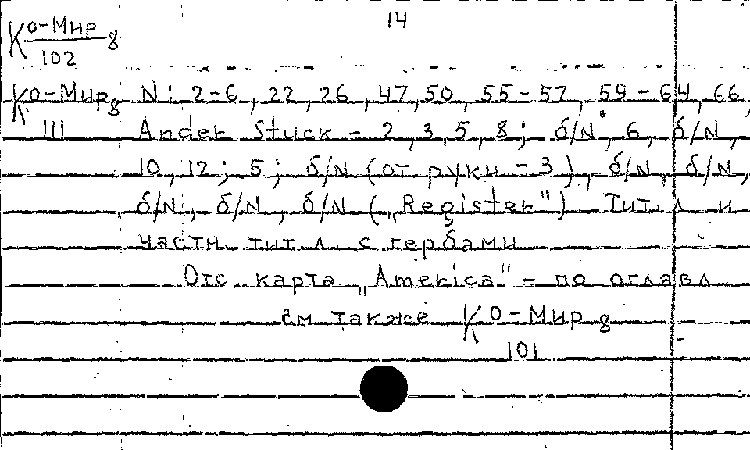 14
К о-Мир 8
102
К о-Мир 8 N: 2-6, 22, 26, 47, 50, 55-57, 59-64, 66,
111 Ander Stuck - 2, 3, 5, 8; б/N, 6, б/N,
10, 12; 5; б/N (от руки - 3), б/N, б/N,
б/N, б/N, б/N („Register") Тит л и
части тит л с гербами
Отс карта „America" - по оглавл
См также К о-Мир 8
101